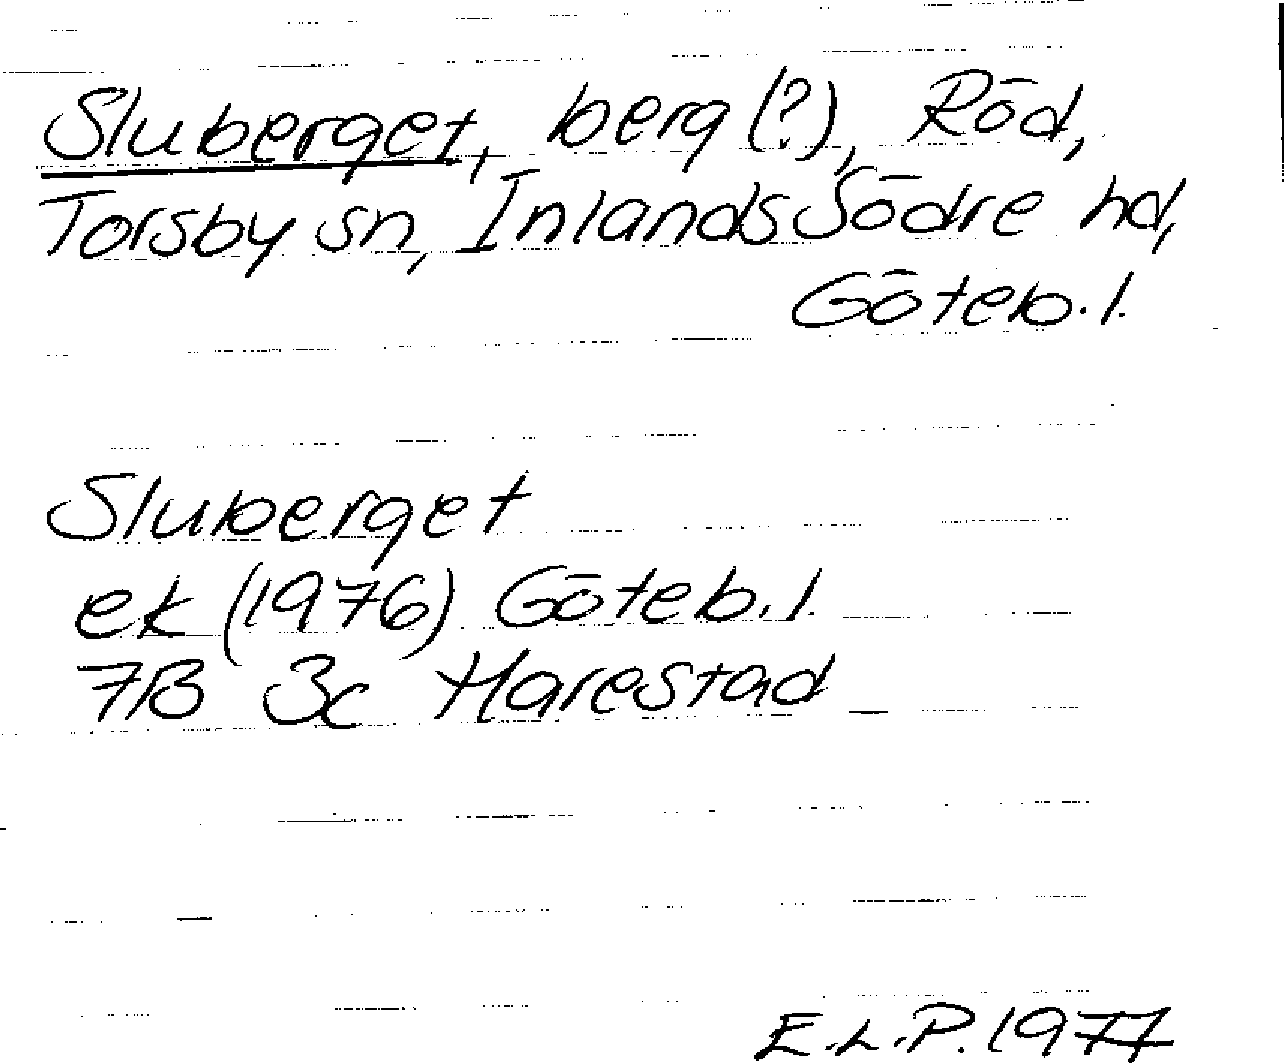 Sluberget, berg (?), Röd,
Torsby sn, Inlands Södre hd,
Göteb. l.
Sluberget
ek (1976) Göteb. l.
7B 3c Harestad
E.L.P. 1977